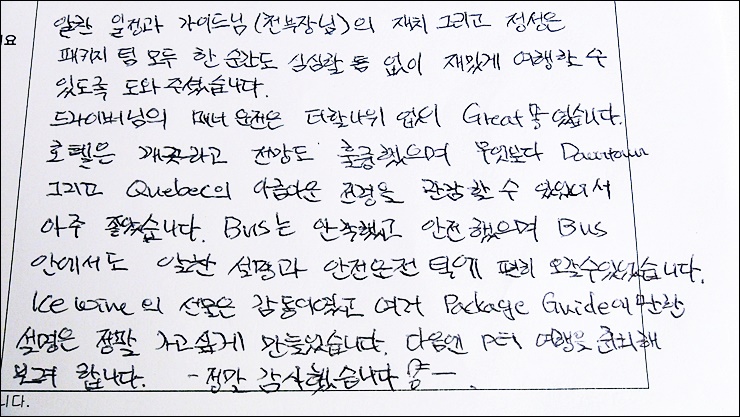 알찬 일정과 가이드님(전부장님)의 재치 그리고 정성은
패키지 팀 모두 한 순간도 심심할 틈 없이 재밌게 여행할 수
있도록 도와주셨습니다.
드라이버님의 매너 운전은 더할나위 없이 Great 했습니다.
호텔은 깨끗하고 전망도 훌륭했으며 무엇보다 Downtown
그리고 Quebec의 아름다운 전경을 관람할 수 있어서
아주 좋았습니다. Bus는 안락했고 안전했으며 Bus
안에서도 알찬 설명과 안전운전 덕에 편히 오갈수있었습니다.
Ice wine의 선물은 감동이었고 여러 Package Guide에
설명은 정말 가고싶게 만들었습니다. 다음엔 PEI 여행을 준비해
보려 합니다. - 정말 감사했습니다
니다.